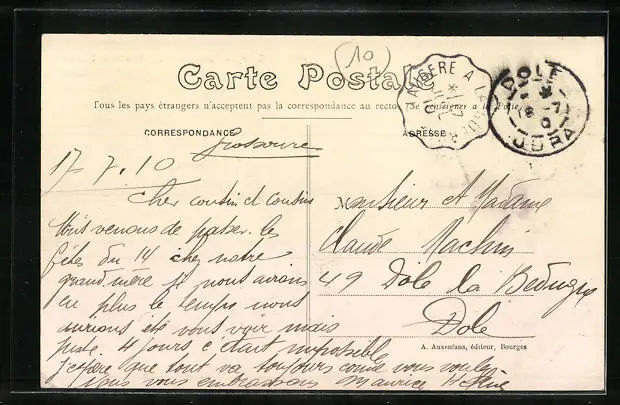 (10)
Carte Postale
Tous les pays étrangers n'acceptent pas la correspondance au recto (Se renseigner à la Poste)
CORRESPONDANCE
ADRESSE
DOLE
JURA
17. 7. 10
Cher cousin et cousine
Nous venons de passer les
fêtes du 14 chez notre
grand mère si nous avions
eu plus le temps nous
aurions été vous voir mais
juste 4 jours c'était impossible
j'espère que tout va toujours comme vous voulez
Nous vous embrassons Maurice
Monsieur et Madame
Claude Machin
49 Dole la
Dole
A. Auxenfans, éditeur, Bourges